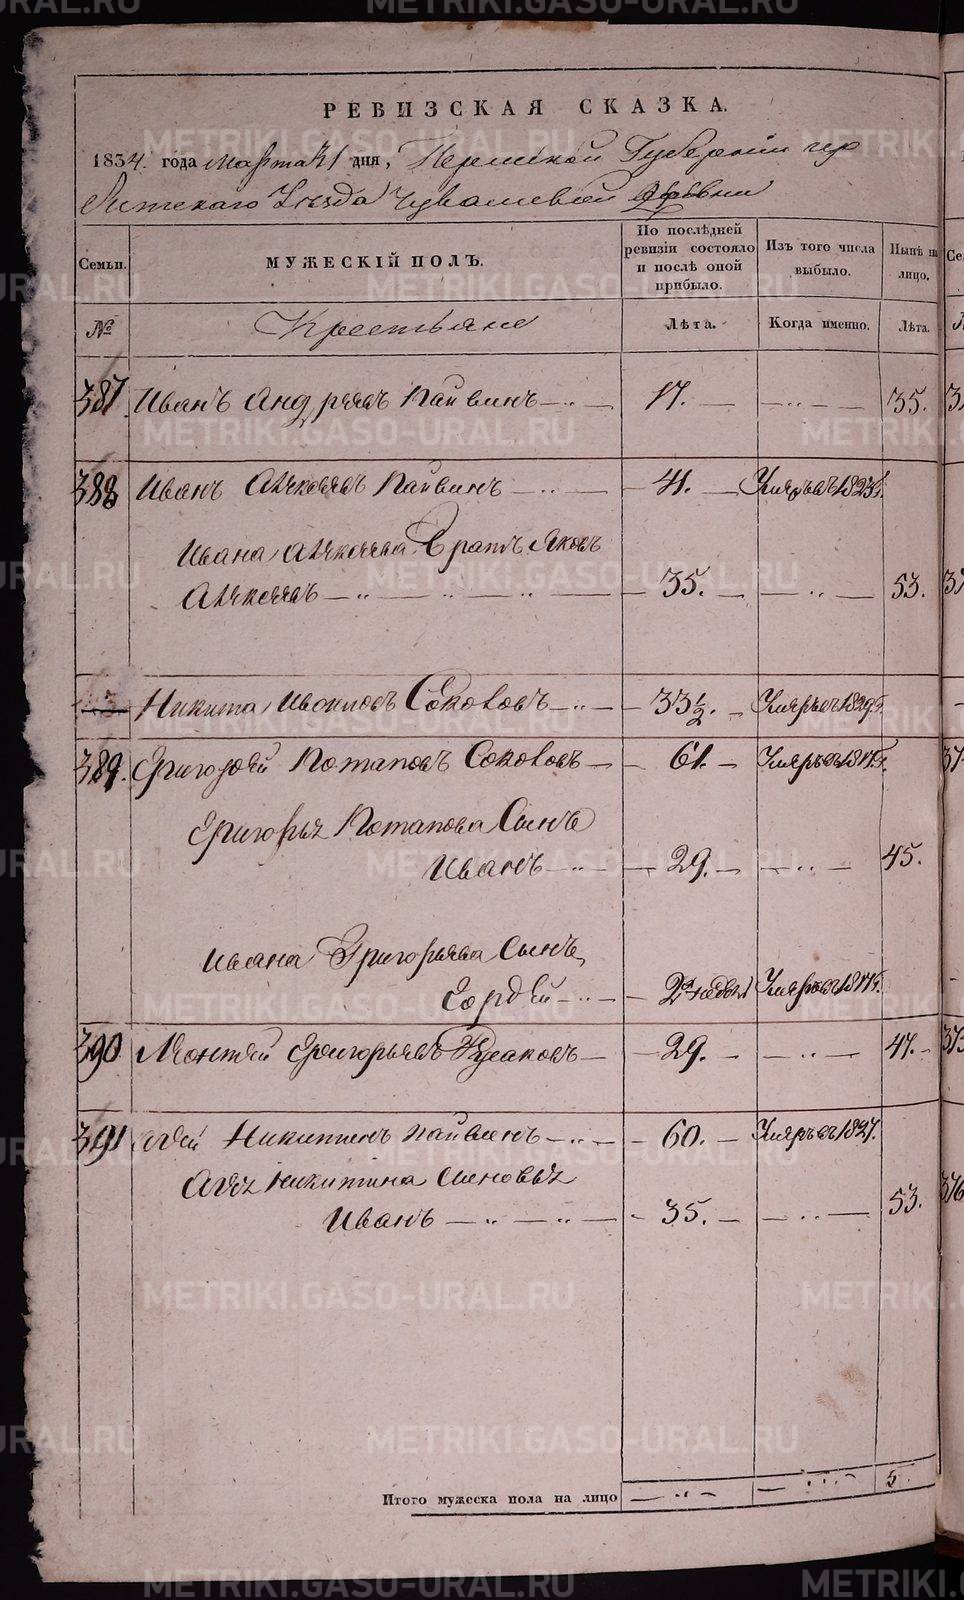 РЕВИЗСКАЯ СКАЗКА.
1834. года Марта 31 дня, Пермской Губернии Ир
битскаго Уезда Чувашевой деревни
Семьи. МУЖЕСКІЙ ПОЛЪ. По послѣдней ревизіи состояло и послѣ оной прибыло. Изъ того числа выбыло. Нынѣ на лицо.
№ Крестьяне Лѣта. Когда именно. Лѣта.
387 Иванъ Андреевъ Пайвинъ 17. 35.
388 Иванъ Алексеевъ Пайвинъ 41. Умре въ
Ивана Алексеева братъ Яковъ
Алексеевъ 35. 53.
Никита Ивановъ Соколовъ 33 1/2. Умре въ 1829 г.
389. Григорей Потаповъ Соколовъ 61. Умре въ
Григорья Потапова Сынъ
Иванъ 29. 45.
Ивана Григорьева Сынъ
Гордей Умре въ
390 Григорьевъ 29. 47.
391 Авдей Никитинъ Пайвинъ 60. Умре въ 1827.
Никитина Сыновья
Иванъ 35. 53.
Итого мужеска пола на лицо 5.
METRIKI.GASO-URAL.RU